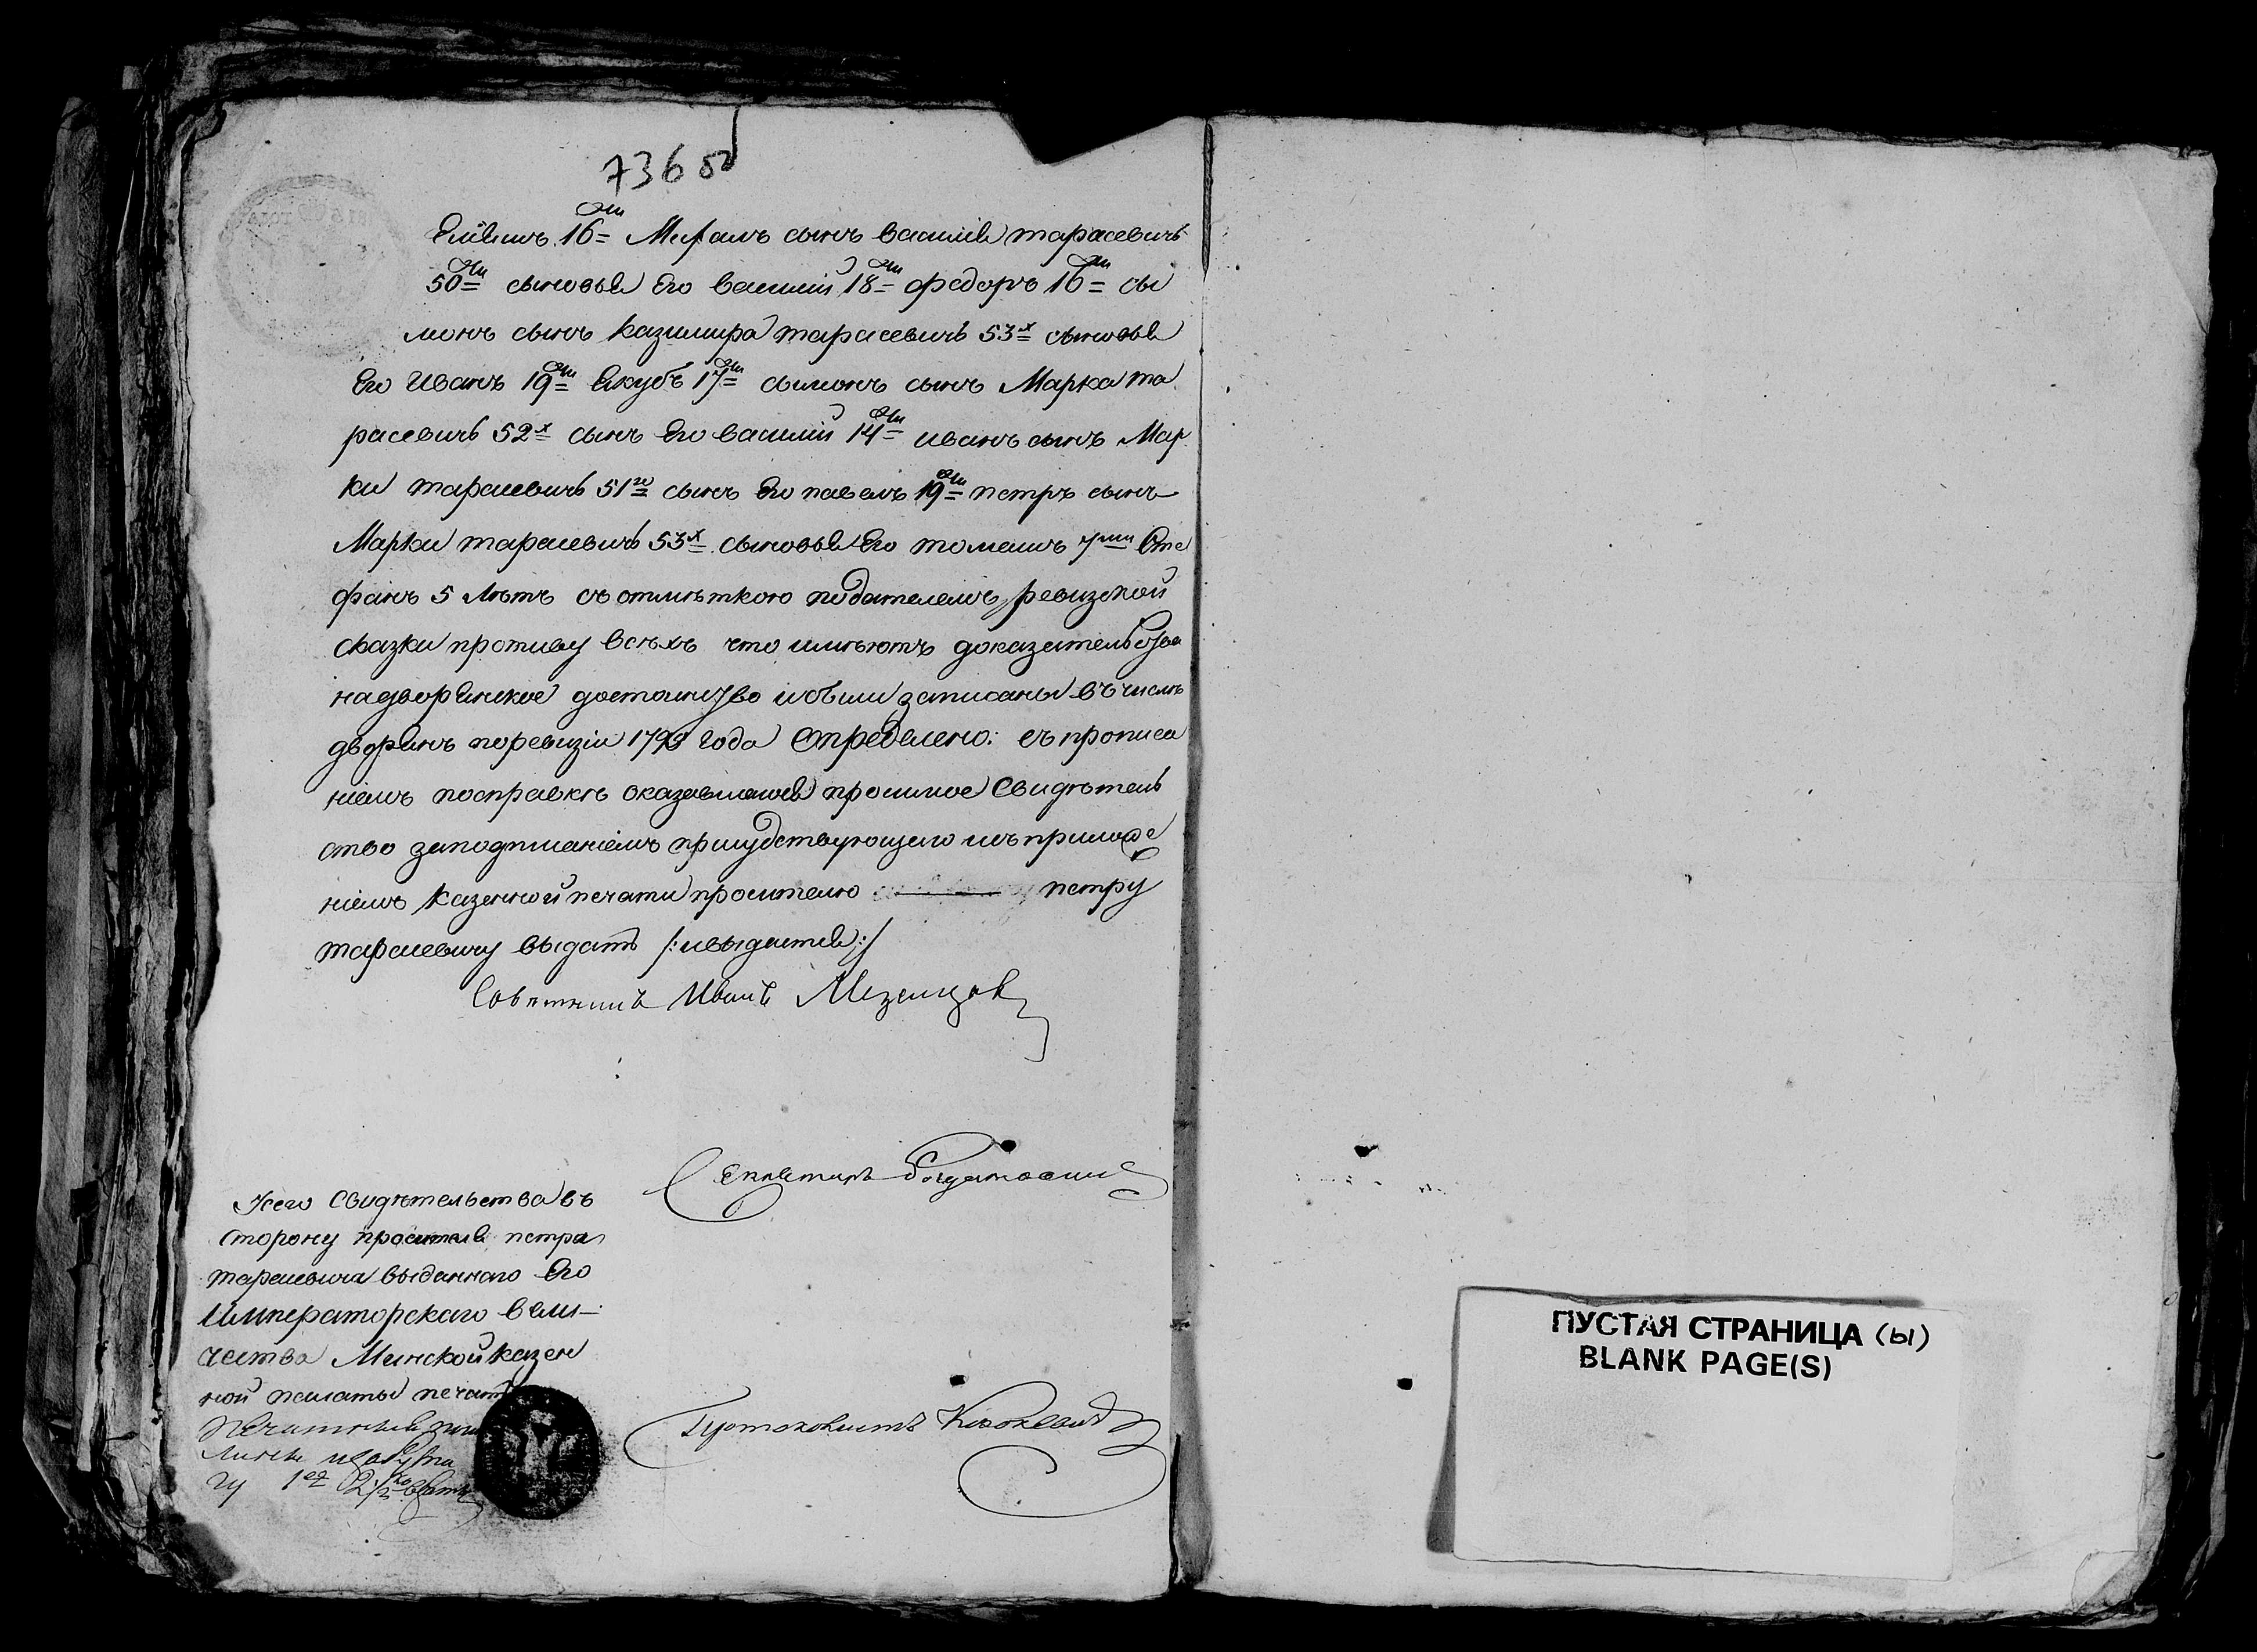 736 об
16ти сынъ василія тарасевичъ
50ти сыновья Его василій 18ти федоръ 16ти си
монъ сынъ казимира тарасевичъ 53х сыновья
Его Иванъ 19ти Якубъ 17ти симонъ сынъ Марка та
расевичъ 52х сынъ Его василій 14ти иванъ сынъ Мар
ки тарасевичъ 51го сынъ Его павелъ 19ти петръ сынъ
Марки тарасевичъ 53х сыновья Его томашъ 7ми Сте
фанъ 5 лѣтъ съ отмѣткою подателемъ ревизской
сказки противу всѣхъ что имѣютъ доказательства
на дворянское достоинство и были записаны въ числѣ
дворянъ по ревизіи 1795 года Определено: съ прописа
ніемъ по справкѣ оказавшагося просимое Свидѣтель
ство за подписаніемъ присудствующаго и съ приложе
ніемъ казенной печати просителю петру
тарасевичу выдать /:и выдается:/
Совѣтникъ Иванъ Мезенцов
Секретарь
У сего Свидѣтельства въ
сторону просителя петра
тарасевича выданнаго Его
Императорскаго вели-
чества Минской казен
ной палаты печать
Протоколистъ
ПУСТАЯ СТРАНИЦА (ы)
BLANK PAGE(S)